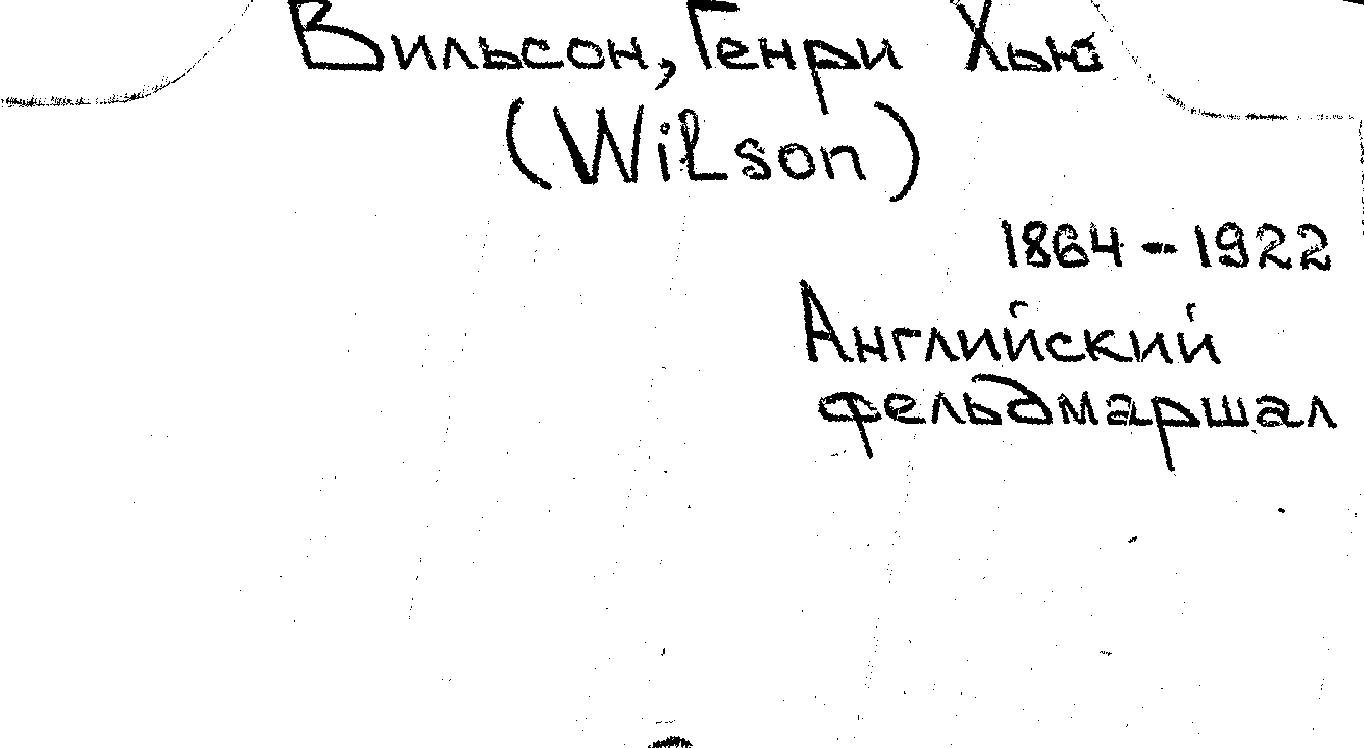 Вильсон, Генри Хью
(Wilson)
1864 - 1922
Английский
фельдмаршал